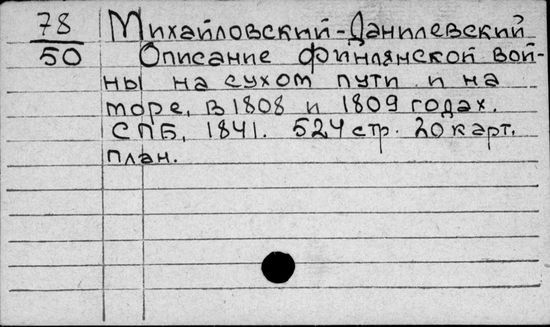 78 Михайловский-Данилевский
50 Описание финлянской вой-
ны на сухом пути и на
море, в 1808 и 1809 годах.
СПБ, 1841. 524 стр. 20 карт.
план.